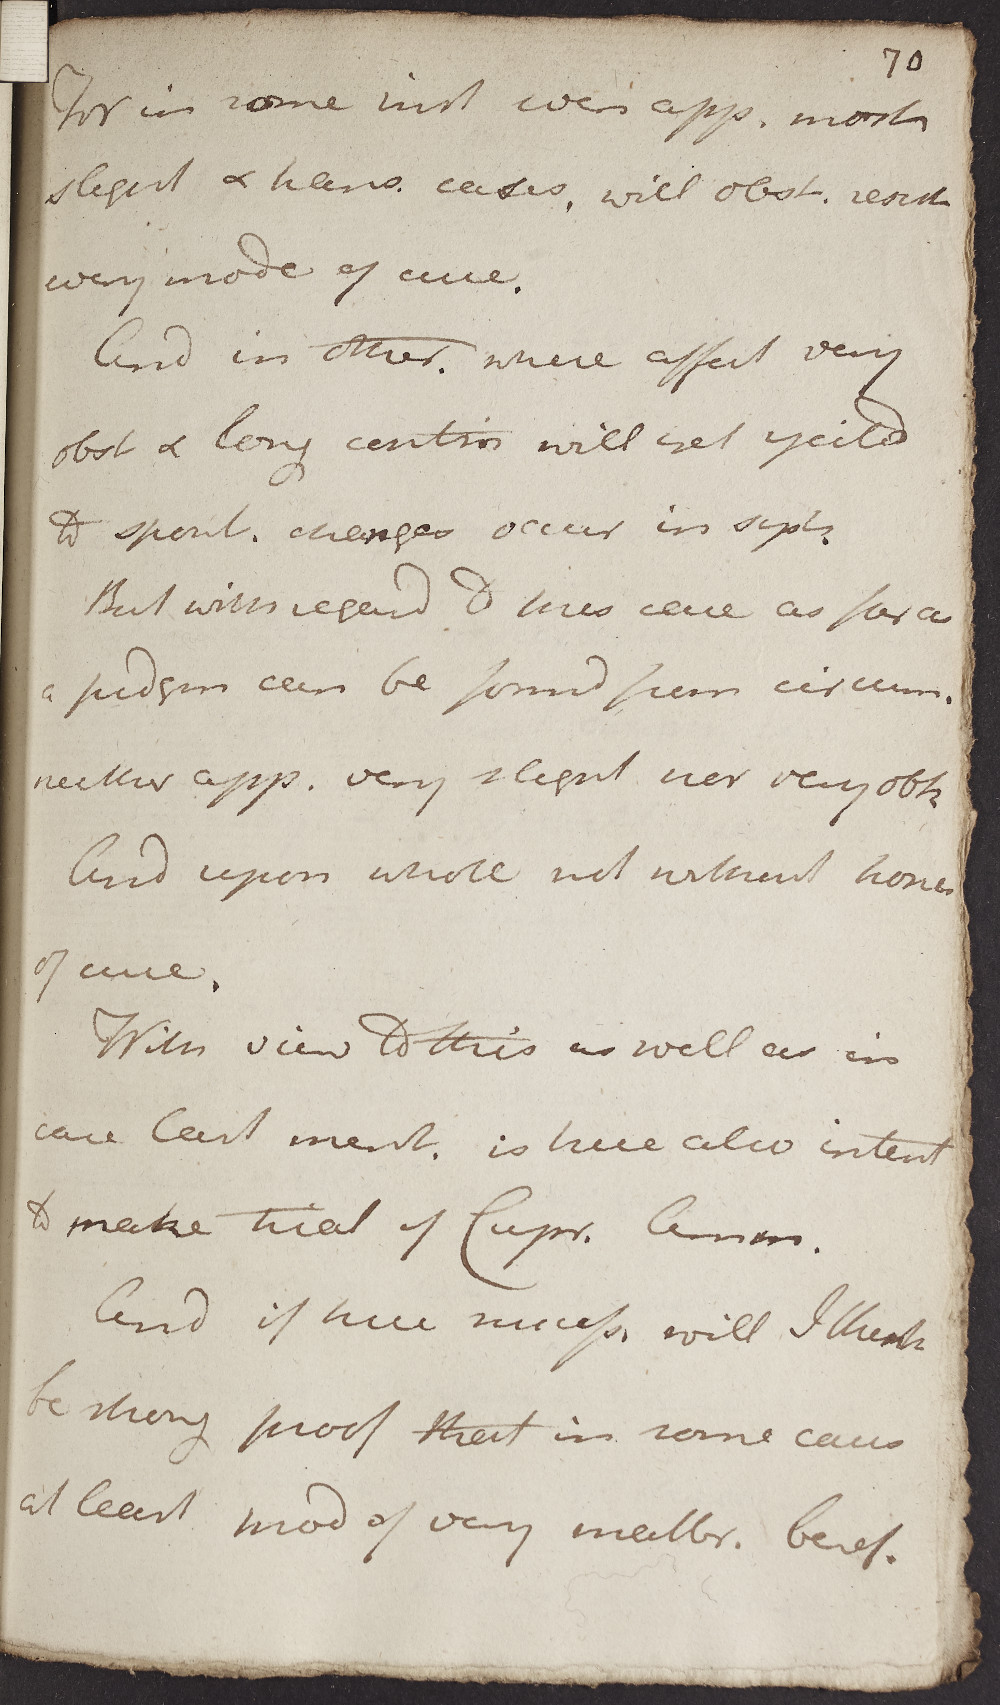 70
For in some inst even app. most
slight & trans. cases, will obst. resist
every mode of cure.
And in other. where affect very
obst & long contin will yet yeild
to spont. changes occur in syst.
But with regard to this case as far as
a judgm can be formd from circum.
neither app. very slight nor very obst
And upon whole not without hopes
of cure.
With view to this as well as in
case last ment. is here also intent
to make trial of Cupr. Amm.
And if here succesf. will I think
be strong proof that in some cases
at least mod of very